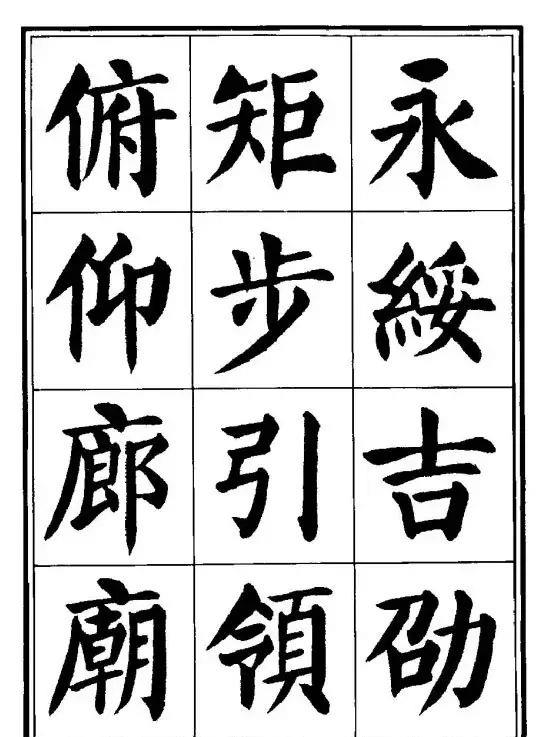 永綏吉劭
矩步引領
俯仰廊廟